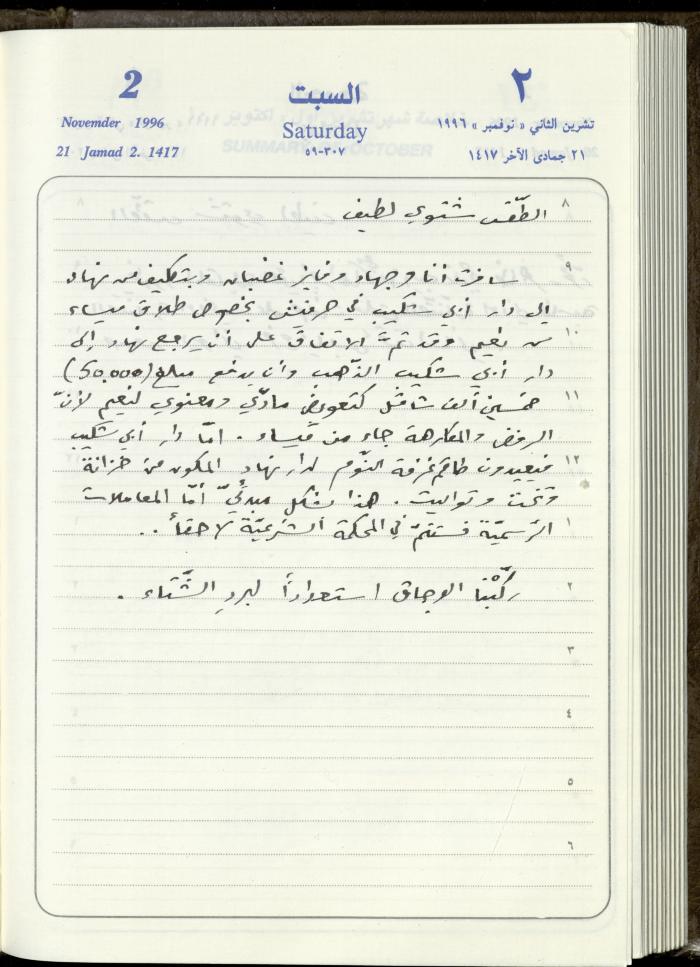 2 السبت ٢
Novemder 1996 Saturday تشرين الثاني « نوفمبر » ١٩٩٦
21 Jamad 2. 1417 ٣٠٧-٥٩ ٢١ جمادى الآخر ١٤١٧
SUMMARY OF OCTOBER
٨ الطّقس شتوي لطيف
٩ سافرت أنا وجهاد وفايز غضبان وبتكليف من نهاد
إلى دار أبي شكيب في حرفيش بخصوص طلاق ميساء
١٠ من نعيم وقد تمّ الاتفاق على أن يرجع نهاد إلى
دار أبي شكيب الذّهب وأن يدفع مبلغ (50,000)
١١ خمسين ألف شاقل كتعويض مادّي ومعنوي لنعيم لأنّ
الرفض والمكارهة جاء من ميساء . امّا دار أبي شكيب
١٢ فيعيدون طاقم غرفة النّوم لدار نهاد المكون من خزانة
وتخت وتواليت . هذا بشكل مبدئيّ أمّا المعاملات
١ الرّسميّة فستتمّ في المحكمة الشّرعيّة لاحقاً . .
٢ ركّبْنا الوجاق استعداداً لبردِ الشّتاء .
٣
٤
٥
٦